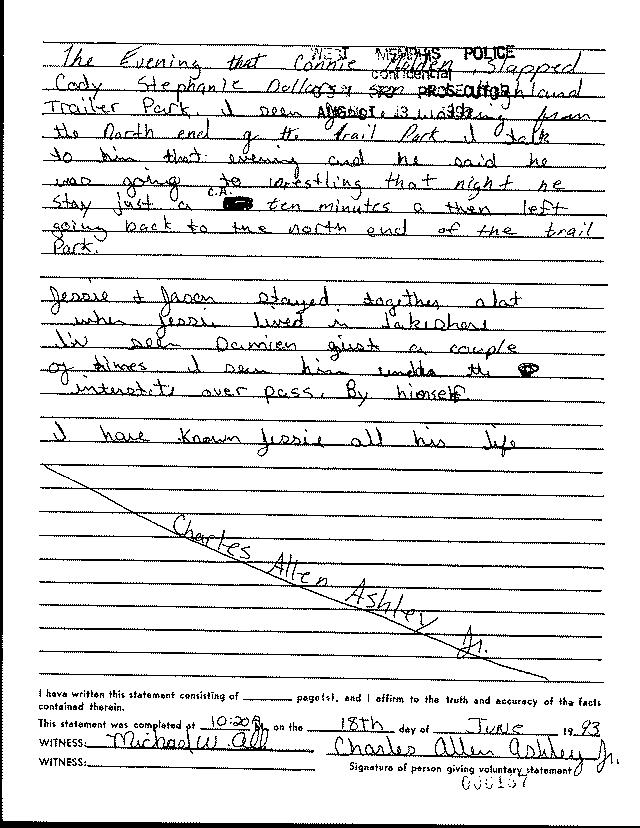 WEST MEMPHIS POLICE
The Evening that Connie Molden Slapped
Confidential
Cody Stephanie Dollar's son Highland
PROSECUTOR
Trailer Park. I seen walking from
the North end of the trail Park I talk
to him that evening and he said he
was going to wrestling that night he
C.A.
stay just a ten minutes a then left
going back to the north end of the trail
Park.
Jessie + Jason stayed together alot
when Jessie lived in Lakeshore
I'v seen Damien gust a couple
of times I seen him under the
interstits over pass. By himself
I have Known Jessie all his life
Charles Allen Ashley Jr.
I have written this statement consisting of ______ page(s), and I affirm to the truth and accuracy of the facts
contained therein.
This statement was completed at 10:20 P. on the 18th day of JUNE 19 93
WITNESS: Michael W. All Charles Allen Ashley Jr.
WITNESS: Signature of person giving voluntary statement
000187